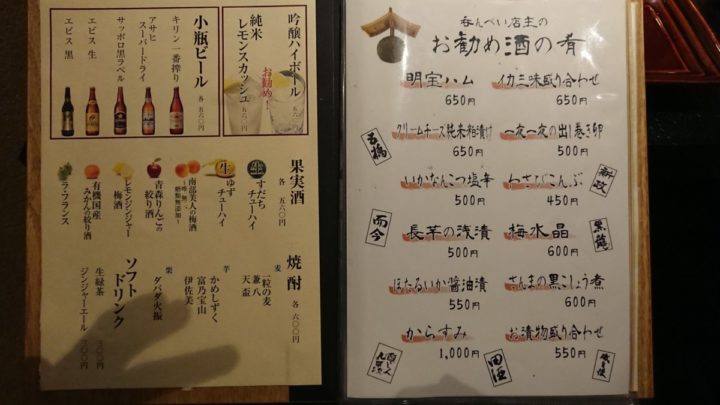 吟醸ハイボール 五六〇円
お勧め!
純米レモンスカッシュ 五六〇円
小瓶ビール 各 五六〇円
キリン 一番搾り
アサヒ スーパードライ
サッポロ黒ラベル
エビス 生
エビス 黒
果実酒 各 五六〇円
生 すだちチューハイ
生 ゆずチューハイ
南部美人の梅酒
〜糖類無添加〜
青森りんごの搾り酒
レモンジンジャー梅酒
有機国産みかんの搾り酒
ラ・フランス
焼酎 各 六〇〇円
麦
一粒の麦
兼八
天盃
芋
かめしずく
富乃宝山
伊佐美
栗
ダバダ火振
ソフトドリンク
生緑茶 三〇〇円
ジンジャーエール 三〇〇円
呑んべい店主の
お勧め酒の肴
明宝ハム
650円
イカ三味盛り合わせ
650円
クリームチーズ純米粕漬け
650円
一夜一夜の出し巻き卵
500円
いかなんこつ塩辛
500円
わさびこんぶ
450円
長芋の浅漬
500円
梅水晶
600円
ほたるいか醤油漬
550円
さんまの黒こしょう煮
600円
からすみ
1,000円
お漬物盛り合わせ
550円
五橋
新政
而今
黒龍
田酒